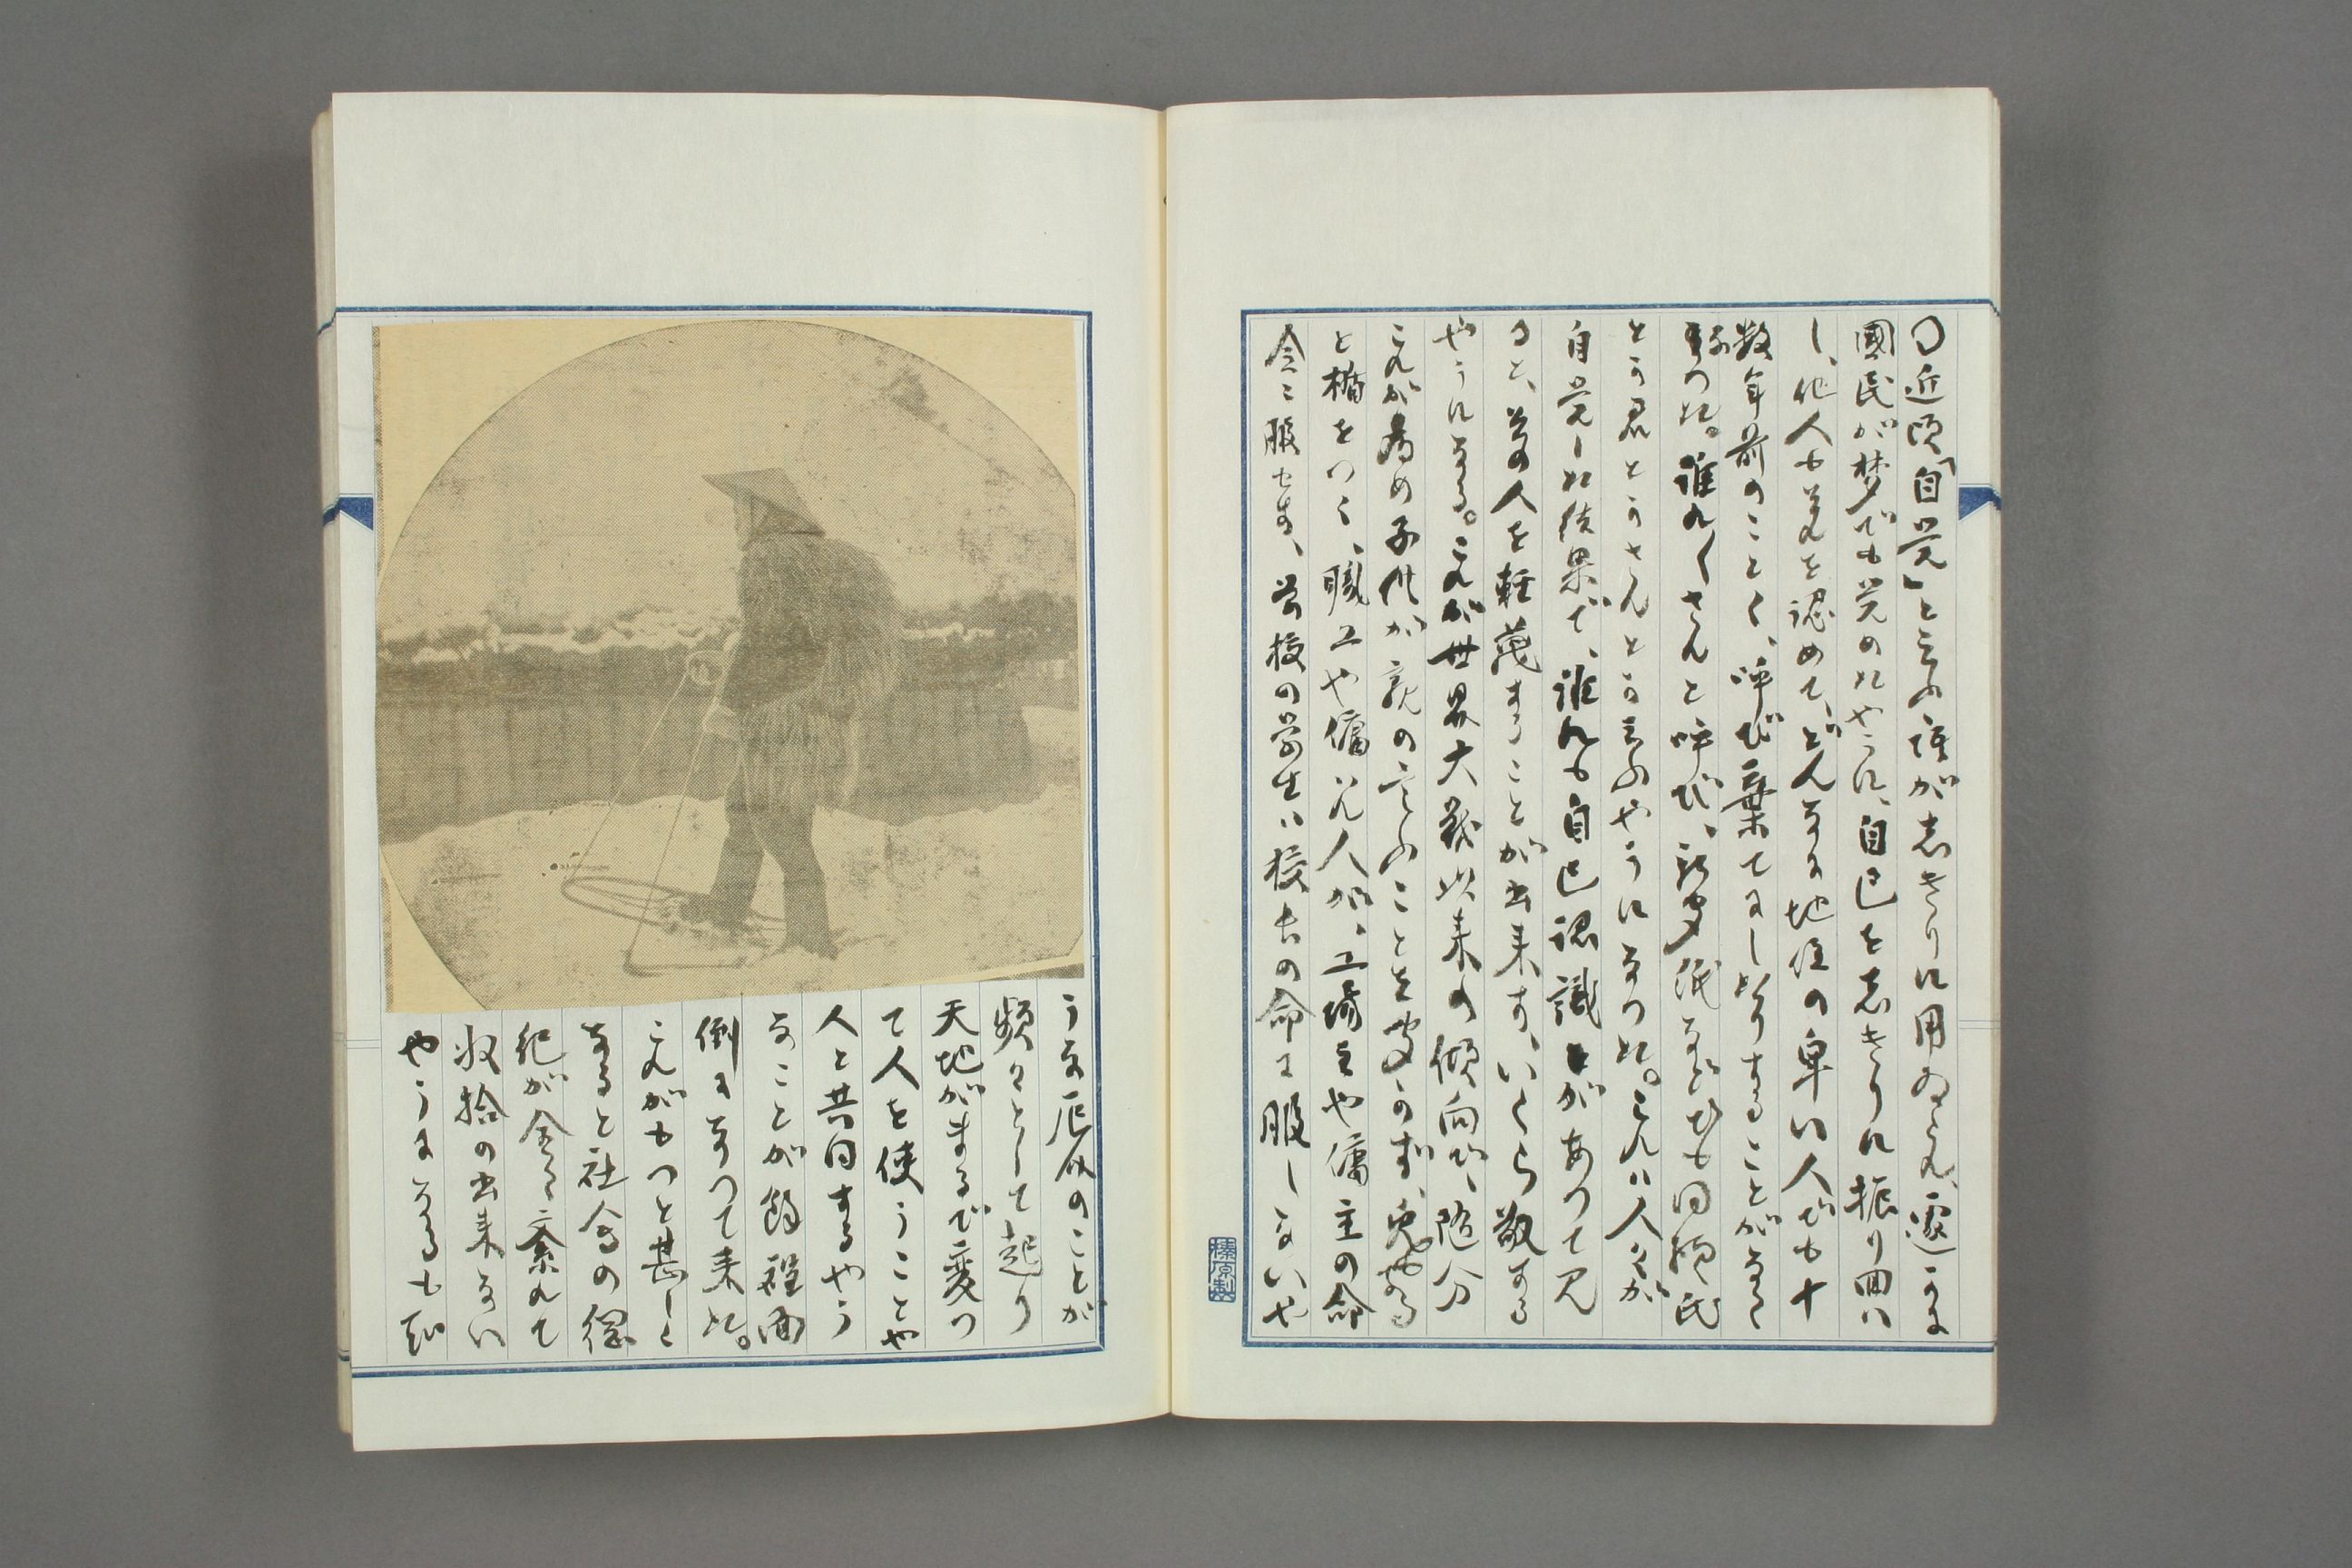 〇近頃「自覚」と云ふ語がしきりに用ゐられ、遽かに
國民が夢でも覚めたやうに、自己をしきりに振り囬は
し、他人も其れを認めて、どんなに地位の卑い人でも十
数年前のことく、呼び棄てにしたりすることがなく
なつた。誰れ〱さんと呼び、新聞紙などでも何某氏
とか君とかさんとか云ふやうになつた。これは人々が
自覚した結果で、誰れも自己認識があつて見
ると、其の人を軽蔑することが出来ず、いくら敬する
やうになる。これが世界大戦以来の傾向で、随分
これが為め子供が親の言ふことを聴かず、
と楯をつく、職工や傭は人が、工場主や傭主の命
令に服せず、学校の学生は校長の命に服しないや
榛原製
うな反対のことが
頻々として起り
天地がまるで変つ
て人を使うことや
人と共同するやう
なことが餘程面
倒になつて来た。
これがもつと甚しく
なると社会の綱
紀が全く紊れて
収拾の出来ない
やうになるも知